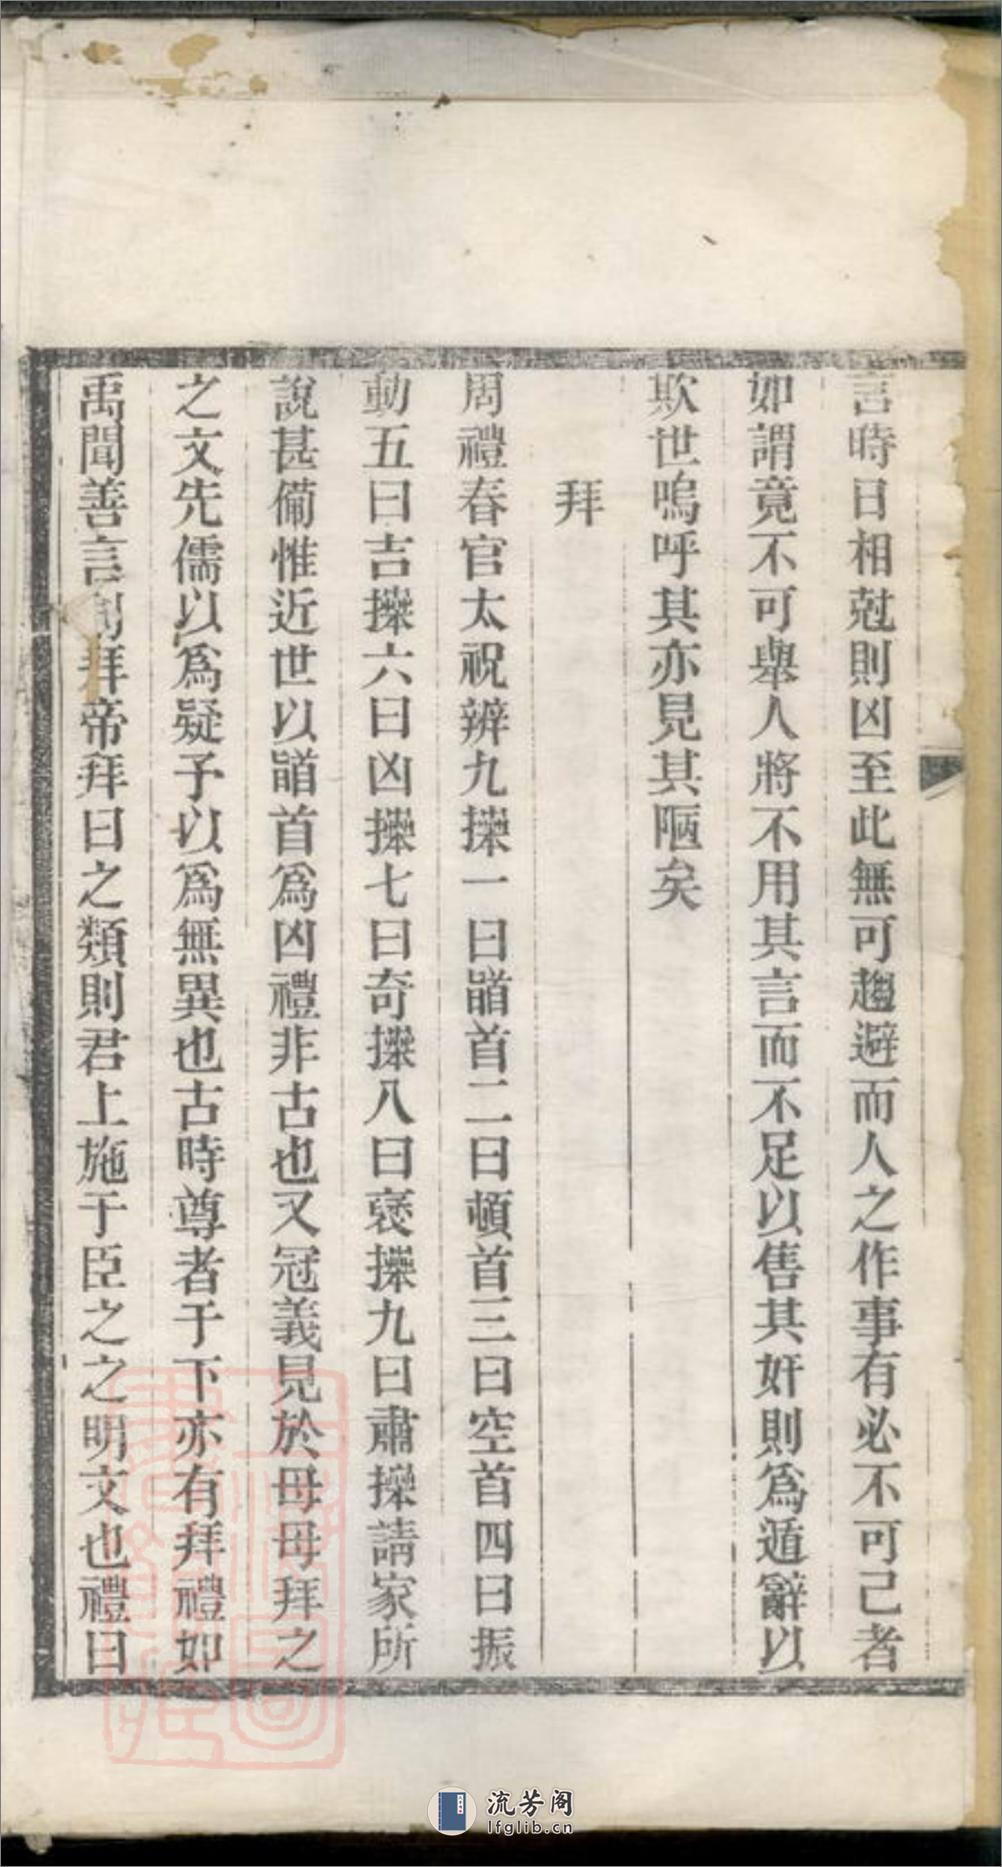 言時日相尅則凶至此無可趨避而人之作事有必不可已者
如謂竟不可舉人將不用其言而不足以售其奸則爲遁辭以
欺世嗚呼其亦見其陋矣
拜
周禮春官太祝辨九𢷎一曰䭫首二曰頓首三曰空首四曰振
動五曰吉𢷎六曰凶𢷎七曰奇𢷎八曰褒𢷎九曰肅𢷎請家所
說甚備惟近世以䭫首爲凶禮非古也又冠義見於母母拜之
之文先儒以爲疑予以爲無異也古時尊者于下亦有拜禮如
禹聞善言則拜帝拜曰之類則君上施于臣之之明文也禮曰
流芳阁
lfglib.cn